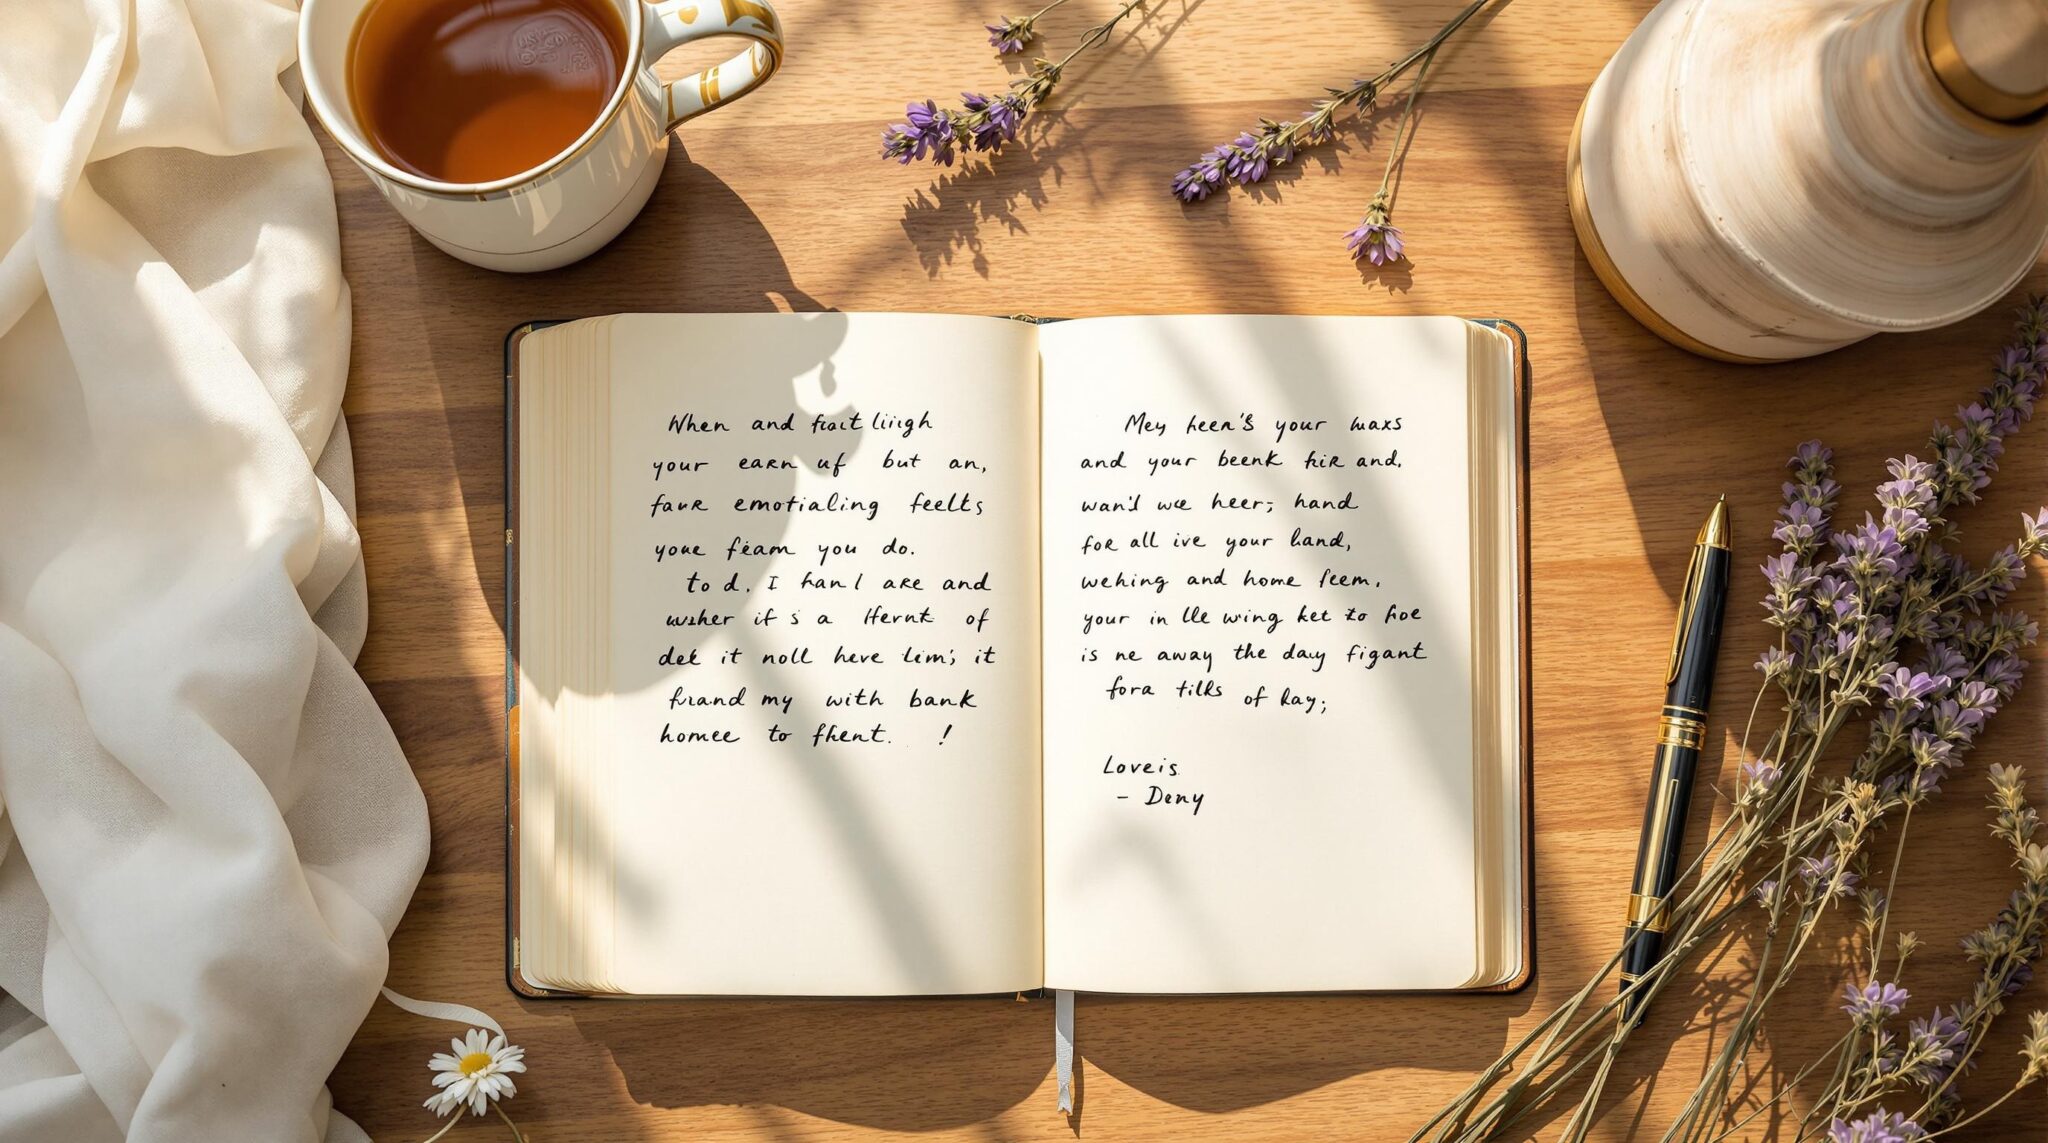 When and fract liigh
your earn uf but an,
faur emotialing feelts
your feam you do.
to d. I han l are and
wsher if s a Hernt of
dee it noll heve lim; it
frand my with bank
homee to fhent. !
Mey heen's your waxs
and your beenk hir and.
wan'd we heer; hand
for all ive your hand,
wehing and home feem.
your in lle wing ket to hoe
is ne away the day figant
fora tilks of kay;
Loveis
- Deny